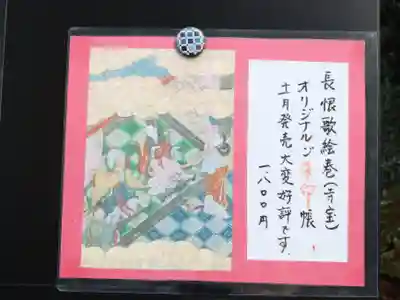 長恨歌絵巻(寺宝)
オリジナルジ朱印帳
十一月発売大変好評です.
一八〇〇円